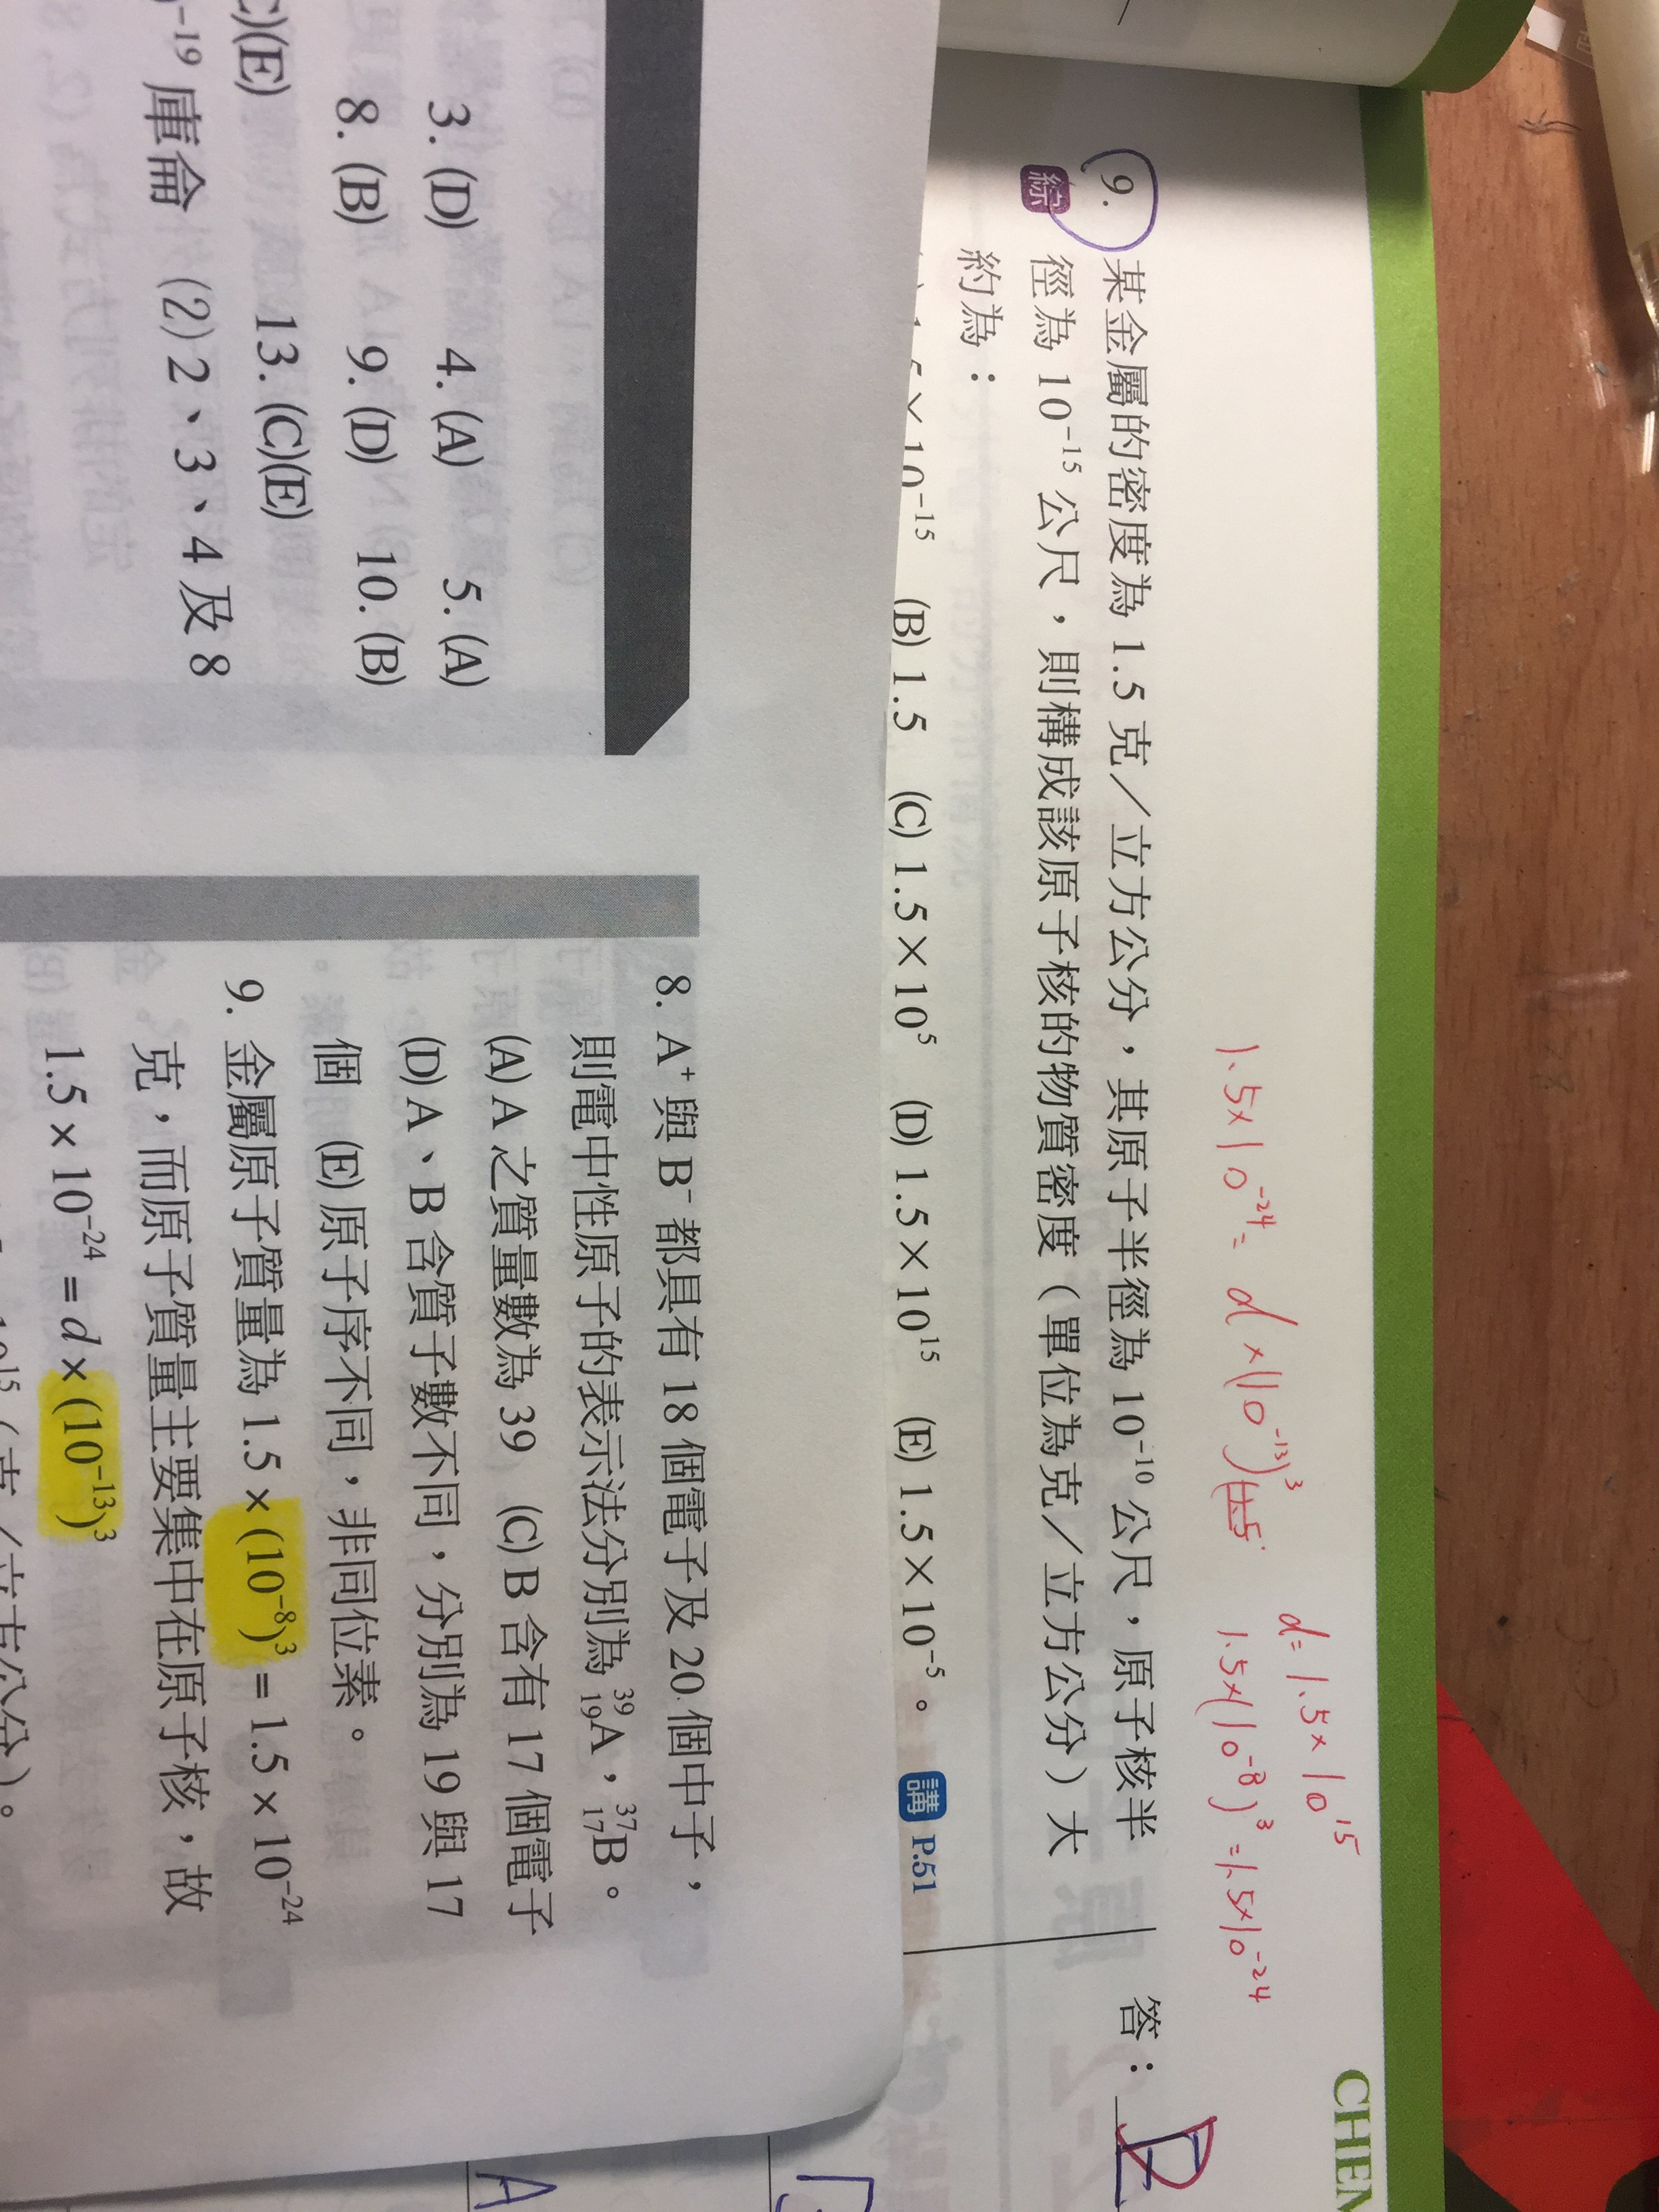 1.5×10⁻²⁴= d×(10⁻¹³)³
d= 1.5×10¹⁵
1.5×(10⁻⁸)³=1.5×10⁻²⁴
CHEM
9. 某金屬的密度為 1.5 克／立方公分，其原子半徑為 10⁻¹⁰ 公尺，原子核半
綜 徑為 10⁻¹⁵ 公尺，則構成該原子核的物質密度（單位為克／立方公分）大
約為：
×10⁻¹⁵ (B) 1.5 (C) 1.5×10⁵ (D) 1.5×10¹⁵ (E) 1.5×10⁻⁵。 講 P.51
答：
3. (D) 4. (A) 5. (A)
8. (B) 9. (D) 10. (B)
(E) 13. (C)(E)
⁻¹⁹ 庫侖 (2) 2、3、4 及 8
8. A⁺ 與 B⁻ 都具有 18 個電子及 20 個中子，
則電中性原子的表示法分別為 ³⁹₁₉A，³⁷₁₇B。
(A) A 之質量數為 39 (C) B 含有 17 個電子
(D) A、B 含質子數不同，分別為 19 與 17
個 (E) 原子序不同，非同位素。
9. 金屬原子質量為 1.5×(10⁻⁸)³＝1.5×10⁻²⁴
克，而原子質量主要集中在原子核，故
1.5×10⁻²⁴＝d×(10⁻¹³)³
10¹⁵（克／立方公分）。
A